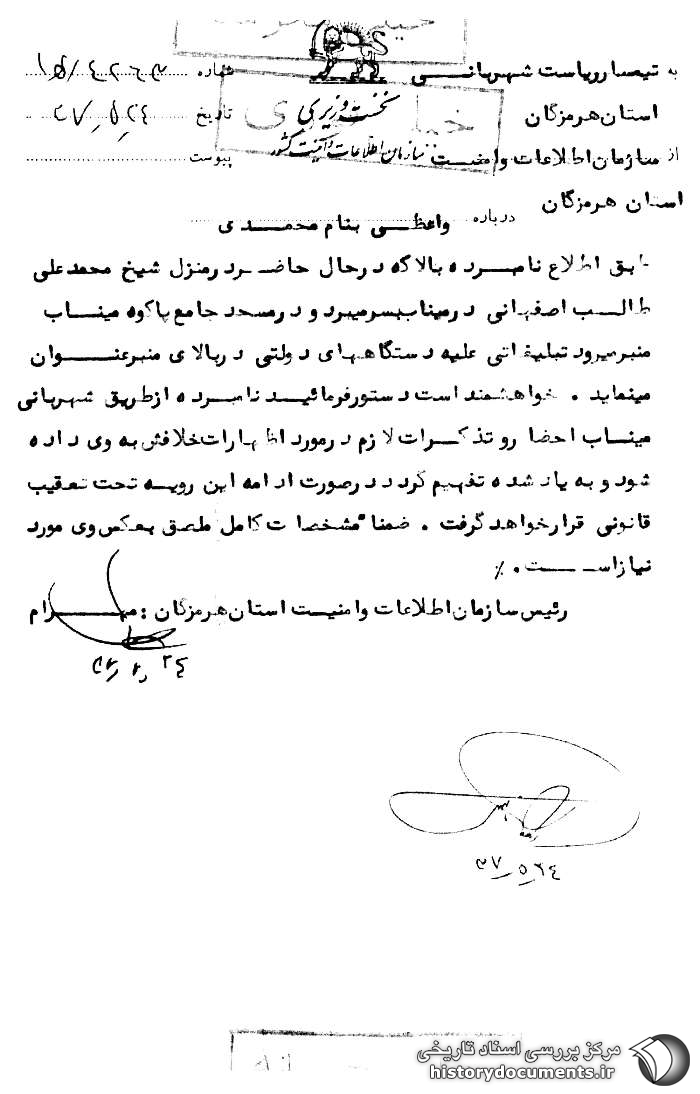 خیلی
به تیمسار ریاست شهربانی
شماره ۱۵/۴۲۶۳
نخست وزیری
استان هرمزگان
تاریخ ۳۷/۵/۲۴
خیلی
از سازمان اطلاعات و امنیت
سازمان اطلاعات و امنیت کشور
پیوست
استان هرمزگان
درباره واعظی بنام محمدی
طبق اطلاع نامبرده بالا که در حال حاضر در منزل شیخ محمد علی
طالب اصفهانی در میناب بسر میبرد و در مسجد جامع پاکوه میناب
منبر میرود تبلیغاتی علیه دستگاههای دولتی در بالای منبر عنوان
مینماید . خواهشمند است دستور فرمائید نامبرده از طریق شهربانی
میناب احضار و تذکرات لازم در مورد اظهارات خلافش به وی داده
شود و به یاد شده تفهیم گردد در صورت ادامه این رویه تحت تعقیب
قانونی قرار خواهد گرفت . ضمنا" مشخصات کامل ملصق بعکس وی مورد
نیاز است . ٪
رئیس سازمان اطلاعات و امنیت استان هرمزگان : مهرام
۳۷/۵/۲۴
مرکز بررسی اسناد تاریخی
historydocuments.ir